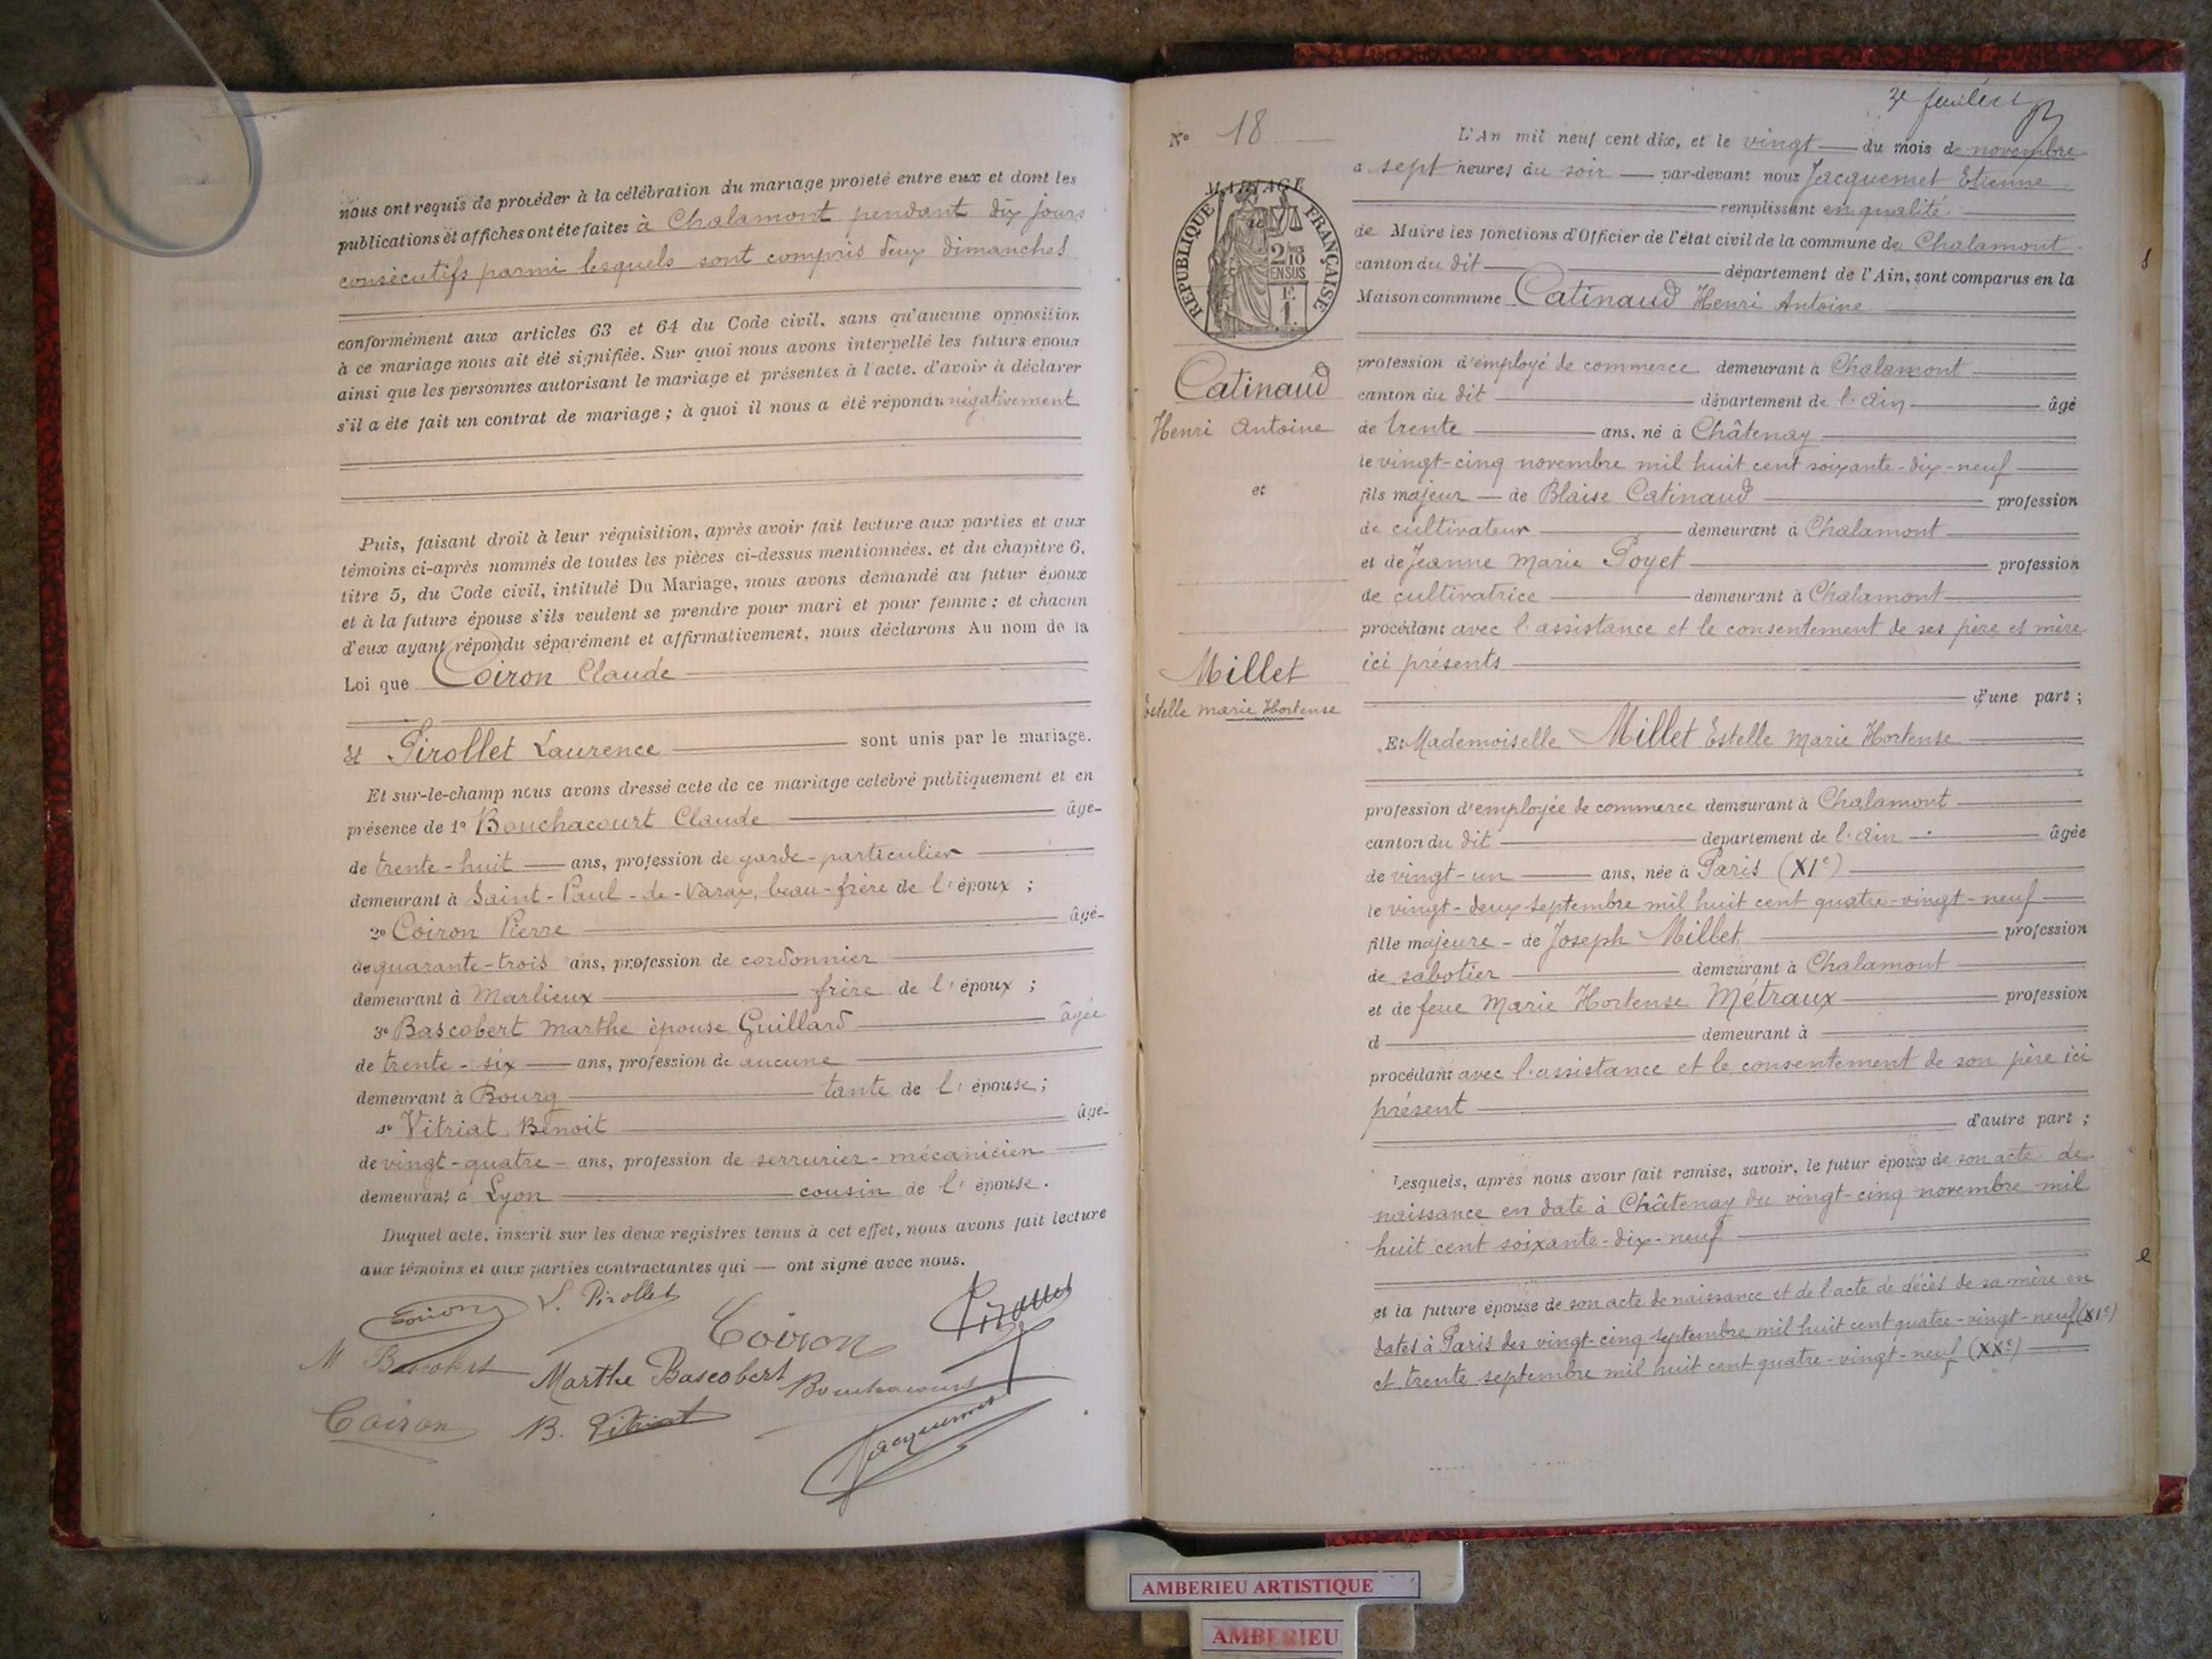 nous ont requis de procéder à la célébration du mariage projeté entre eux et dont les
publications et affiches ont été faites à Chalamont pendant dix jours
consécutifs parmi lesquels sont compris deux dimanches
conformément aux articles 63 et 64 du Code civil, sans qu'aucune opposition
à ce mariage nous ait été signifiée. Sur quoi nous avons interpellé les futurs époux
ainsi que les personnes autorisant le mariage et présentes à l'acte, d'avoir à déclarer
s'il a été fait un contrat de mariage ; à quoi il nous a été répondu négativement
Puis, faisant droit à leur réquisition, après avoir fait lecture aux parties et aux
témoins ci-après nommés de toutes les pièces ci-dessus mentionnées, et du chapitre 6,
titre 5, du Code civil, intitulé Du Mariage, nous avons demandé au futur époux
et à la future épouse s'ils veulent se prendre pour mari et pour femme ; et chacun
d'eux ayant répondu séparément et affirmativement, nous déclarons Au nom de la
Loi que Coiron Claude
et Pirollet Laurence sont unis par le mariage.
Et sur-le-champ nous avons dressé acte de ce mariage célébré publiquement et en
présence de 1º Bouchacourt Claude âgé
de trente-huit ans, profession de garde-particulier
demeurant à Saint-Paul-de-Varax, beau-frère de l'époux ;
2º Coiron Pierre âgé
de quarante-trois ans, profession de cordonnier
demeurant à Marlieux frère de l'époux ;
3º Bascobert Marthe épouse Guillard âgée
de trente-six ans, profession de aucune
demeurant à Bourg tante de l'épouse ;
4º Vitriat Benoit âgé
de vingt-quatre ans, profession de serrurier-mécanicien
demeurant à Lyon cousin de l'épouse.
Duquel acte, inscrit sur les deux registres tenus à cet effet, nous avons fait lecture
aux témoins et aux parties contractantes qui — ont signé avec nous.
Coiron L. Pirollet Coiron Pirollet
M Bascobert Marthe Bascobert Bouchacourt
Coiron B. Vitriat Jacquemet
Nº 18
MARIAGE
RÉPUBLIQUE FRANÇAISE
2/10
EN SUS
F.
1.
Catinaud
Henri Antoine
et
Millet
Estelle Marie Hortense
L'An mil neuf cent dix, et le vingt du mois de novembre
à sept heures du soir par-devant nous Jacquemet Etienne
remplissant en qualité
de Maire les fonctions d'Officier de l'état civil de la commune de Chalamont
canton du dit département de l'Ain, sont comparus en la
Maison commune Catinaud Henri Antoine
profession d'employé de commerce demeurant à Chalamont
canton du dit département de l'Ain âgé
de trente ans, né à Châtenay
le vingt-cinq novembre mil huit cent soixante-dix-neuf
fils majeur — de Blaise Catinaud profession
de cultivateur demeurant à Chalamont
et de Jeanne Marie Poyet profession
de cultivatrice demeurant à Chalamont
procédant avec l'assistance et le consentement de ses père et mère
ici présents
d'une part ;
Et Mademoiselle Millet Estelle Marie Hortense
profession d'employée de commerce demeurant à Chalamont
canton du dit département de l'Ain âgée
de vingt-un ans, née à Paris (XIe)
le vingt-deux septembre mil huit cent quatre-vingt-neuf
fille majeure - de Joseph Millet profession
de sabotier demeurant à Chalamont
et de feue Marie Hortense Métraux profession
d demeurant à
procédant avec l'assistance et le consentement de son père ici
présent
d'autre part ;
Lesquels, après nous avoir fait remise, savoir, le futur époux de son acte de
naissance en date à Châtenay du vingt-cinq novembre mil
huit cent soixante-dix-neuf
et la future épouse de son acte de naissance et de l'acte de décès de sa mère en
dates à Paris des vingt-cinq septembre mil huit cent quatre-vingt-neuf (XIe)
et trente septembre mil huit cent quatre-vingt-neuf (XXe)
AMBERIEU ARTISTIQUE
AMBERIEU